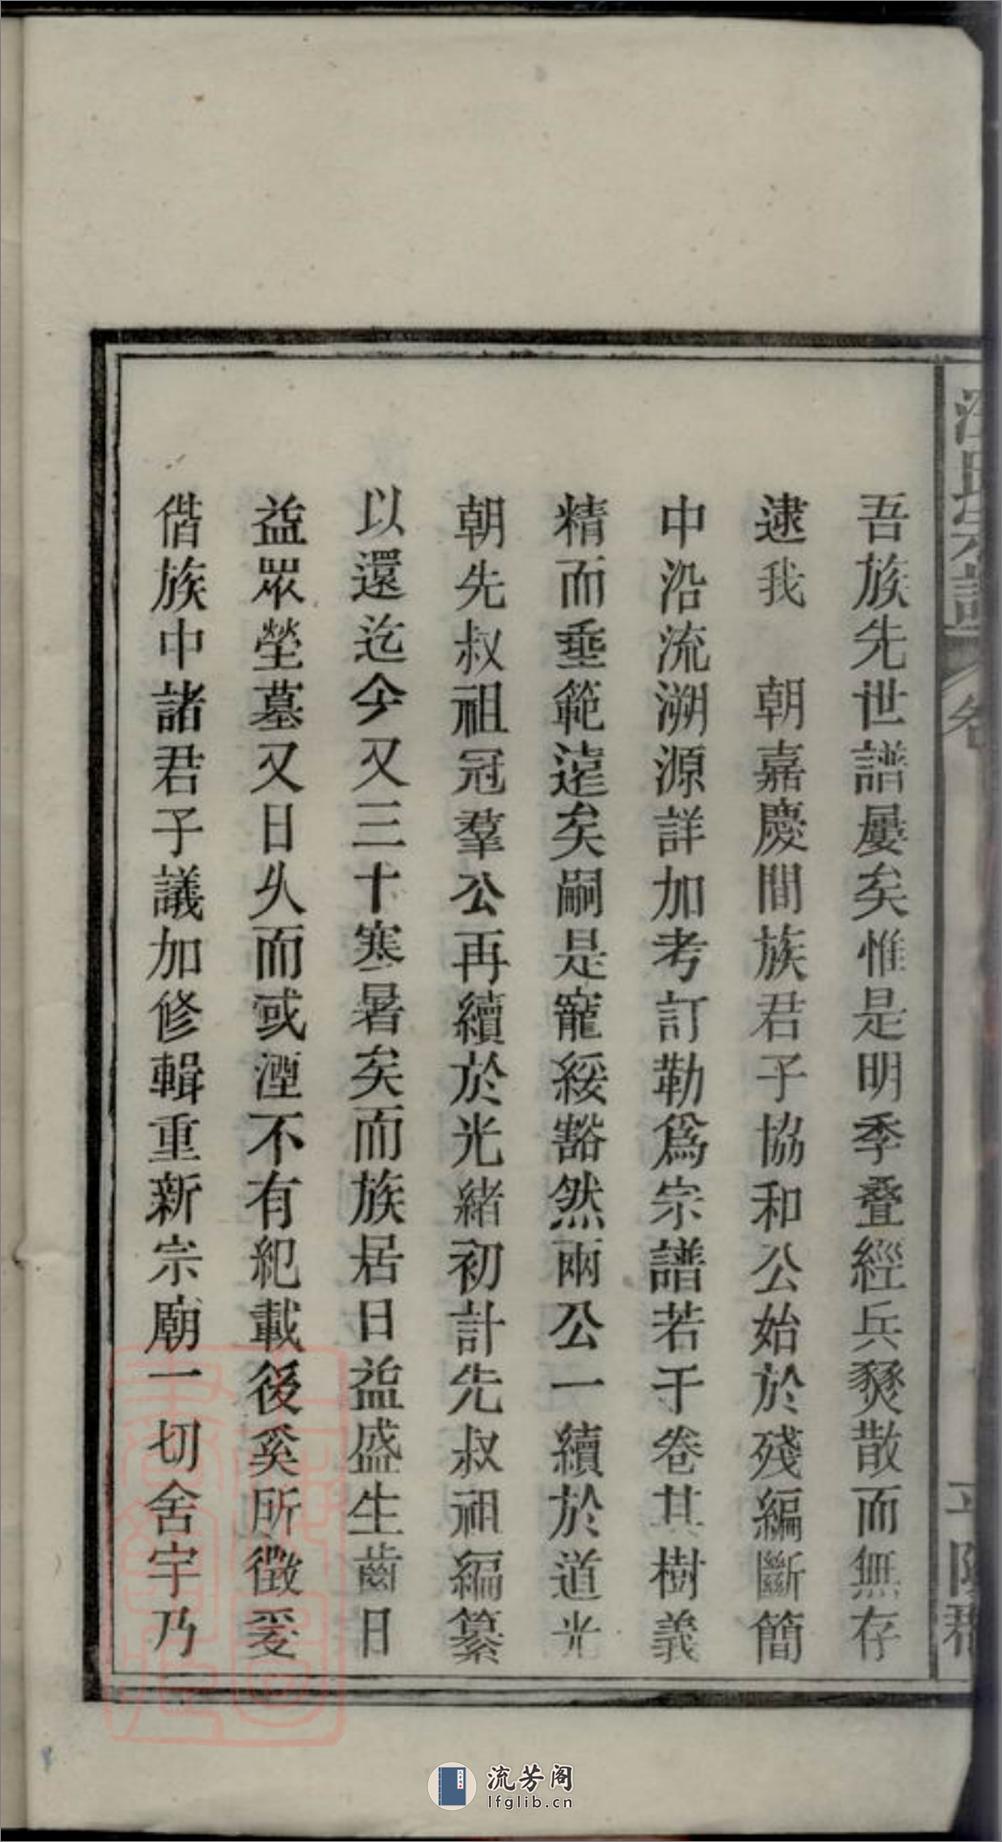 吾族先世譜屢矣惟是明季叠經兵燹散而無存
逮我　朝嘉慶間族君子協和公始於殘編斷簡
中沿流溯源詳加考訂勒爲宗譜若干卷其樹義
精而垂範遠矣嗣是寵綏豁然兩公一續於道光
朝先叔祖冠羣公再續於光緒初計先叔祖編纂
以還迄今又三十寒暑矣而族居日益盛生齒日
益眾塋墓又日久而或湮不有紀載後奚所徵爰
偕族中諸君子議加修輯重新宗廟一切舍宇乃
流芳阁
lfglib.cn